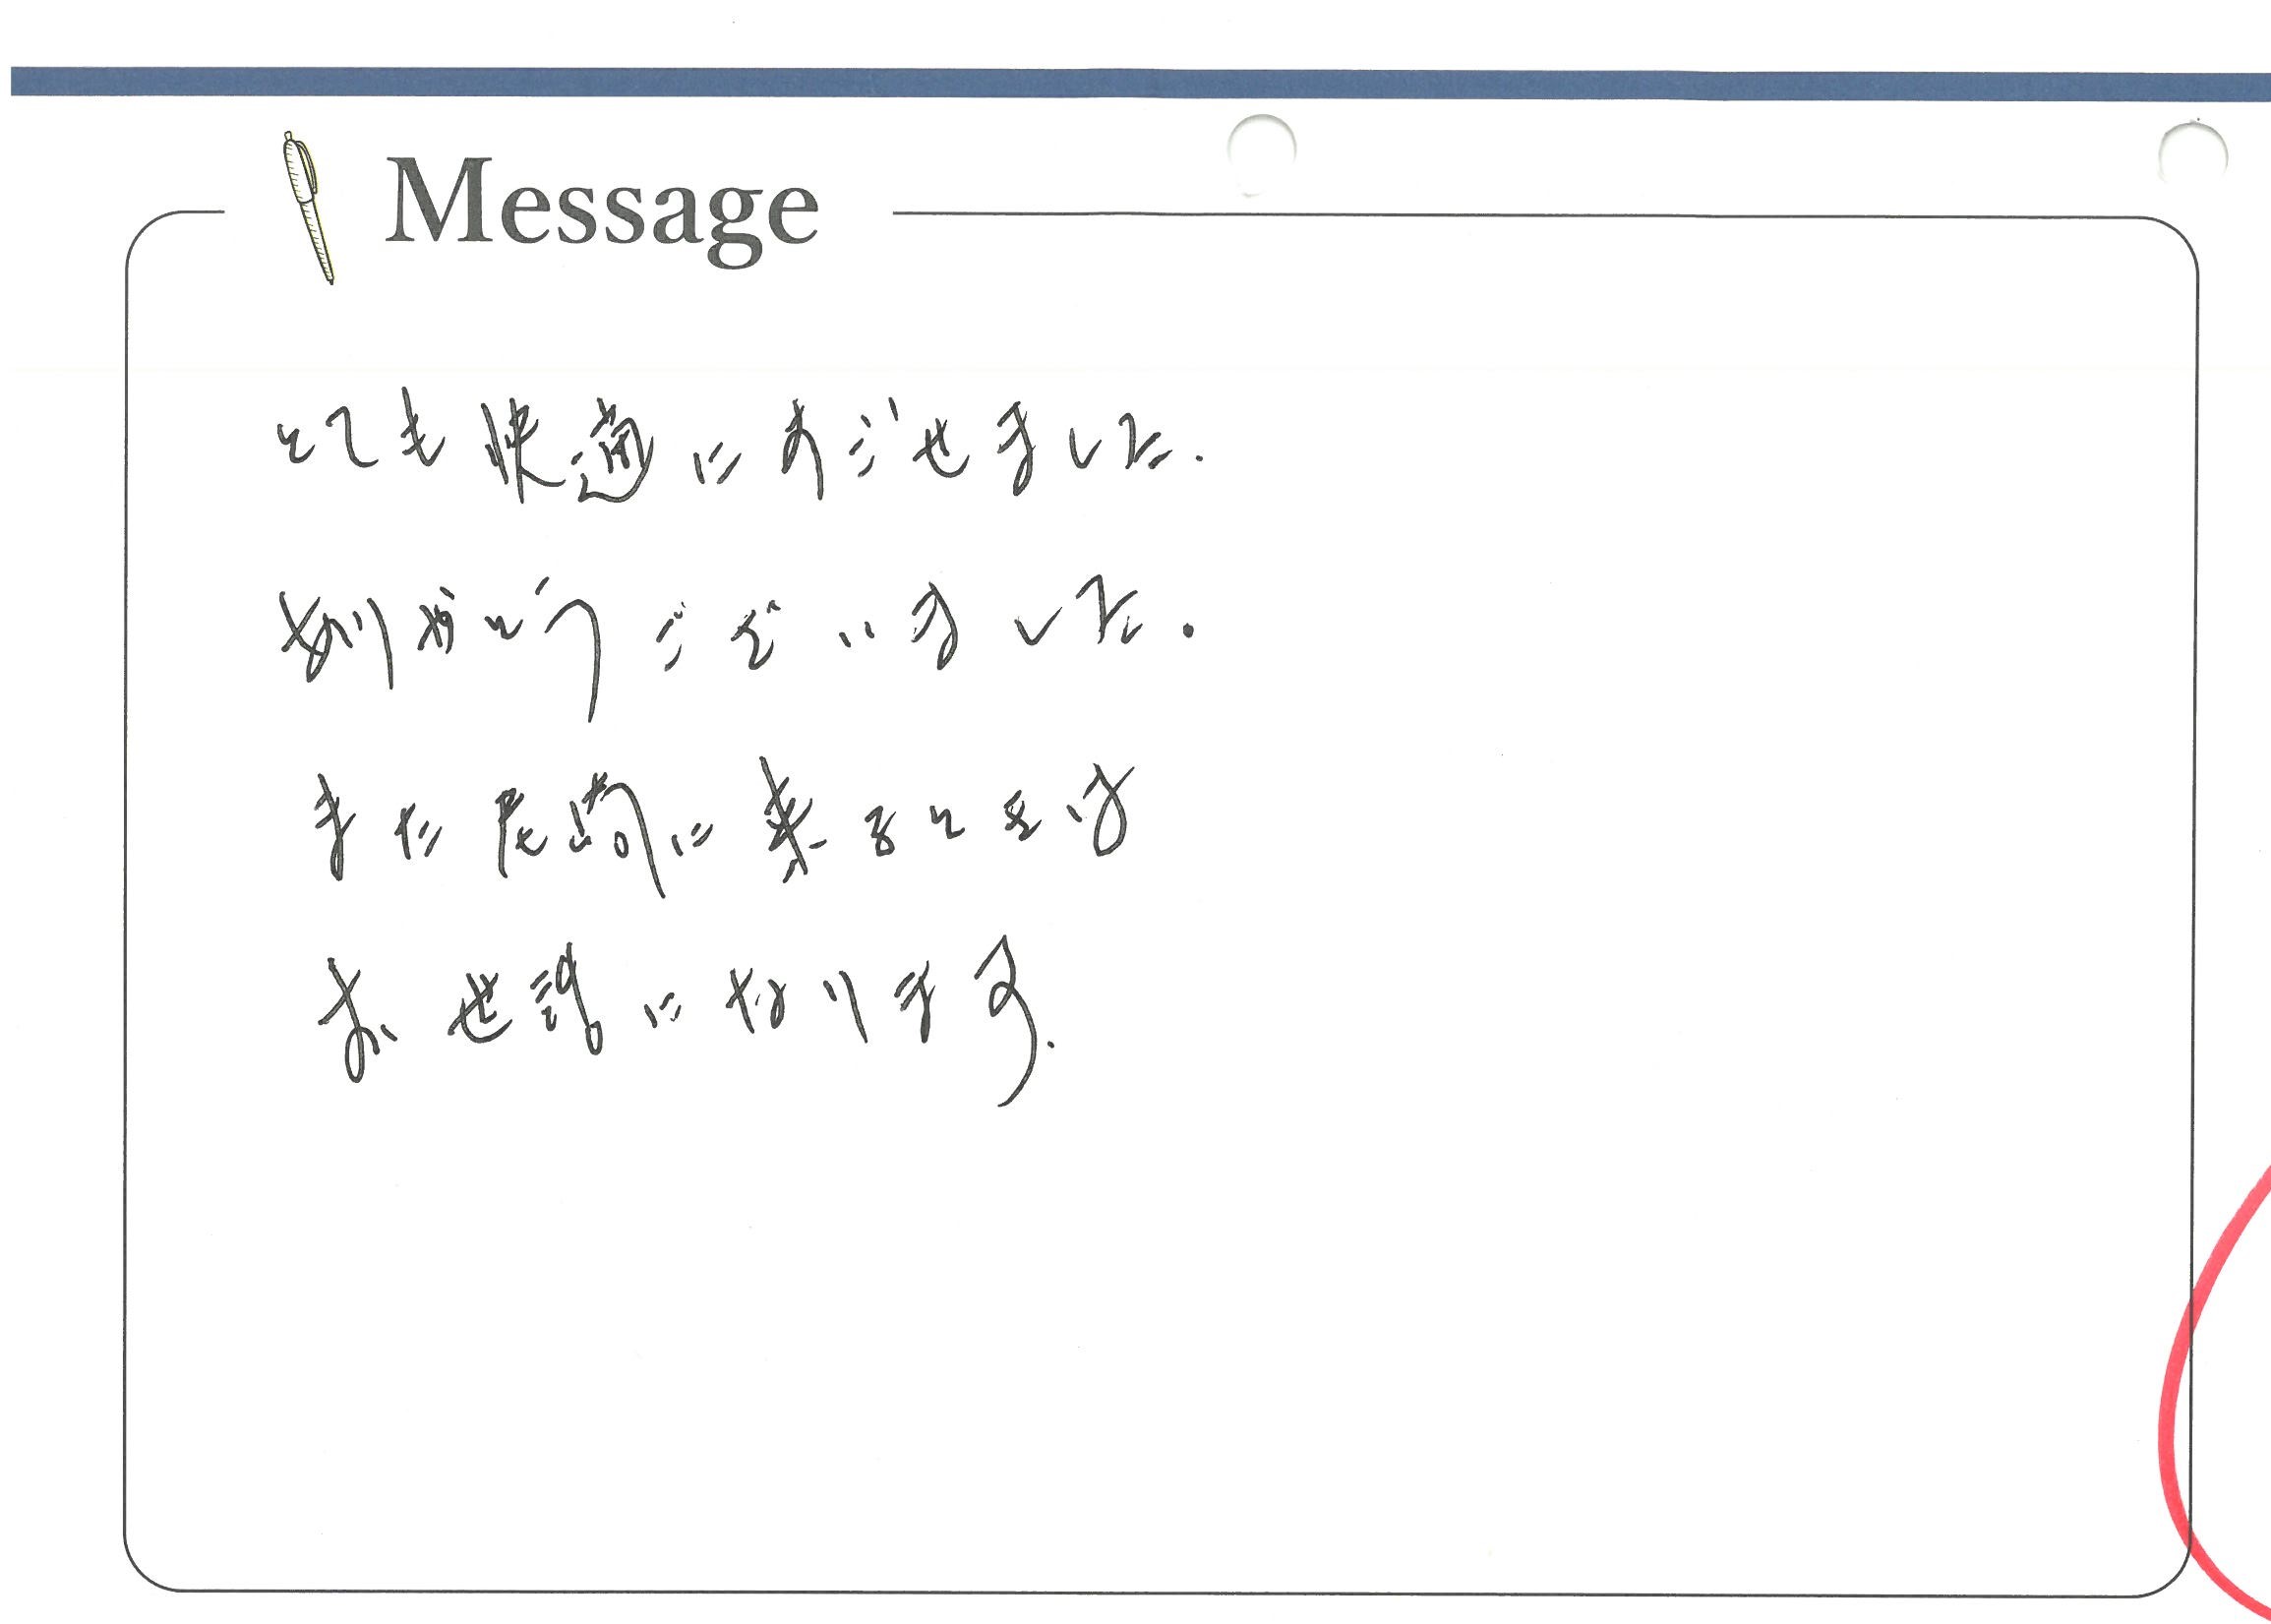 Message
とても快適にすごせました.
ありがとうございました.
また尾崎に来るときは
お世話になります.